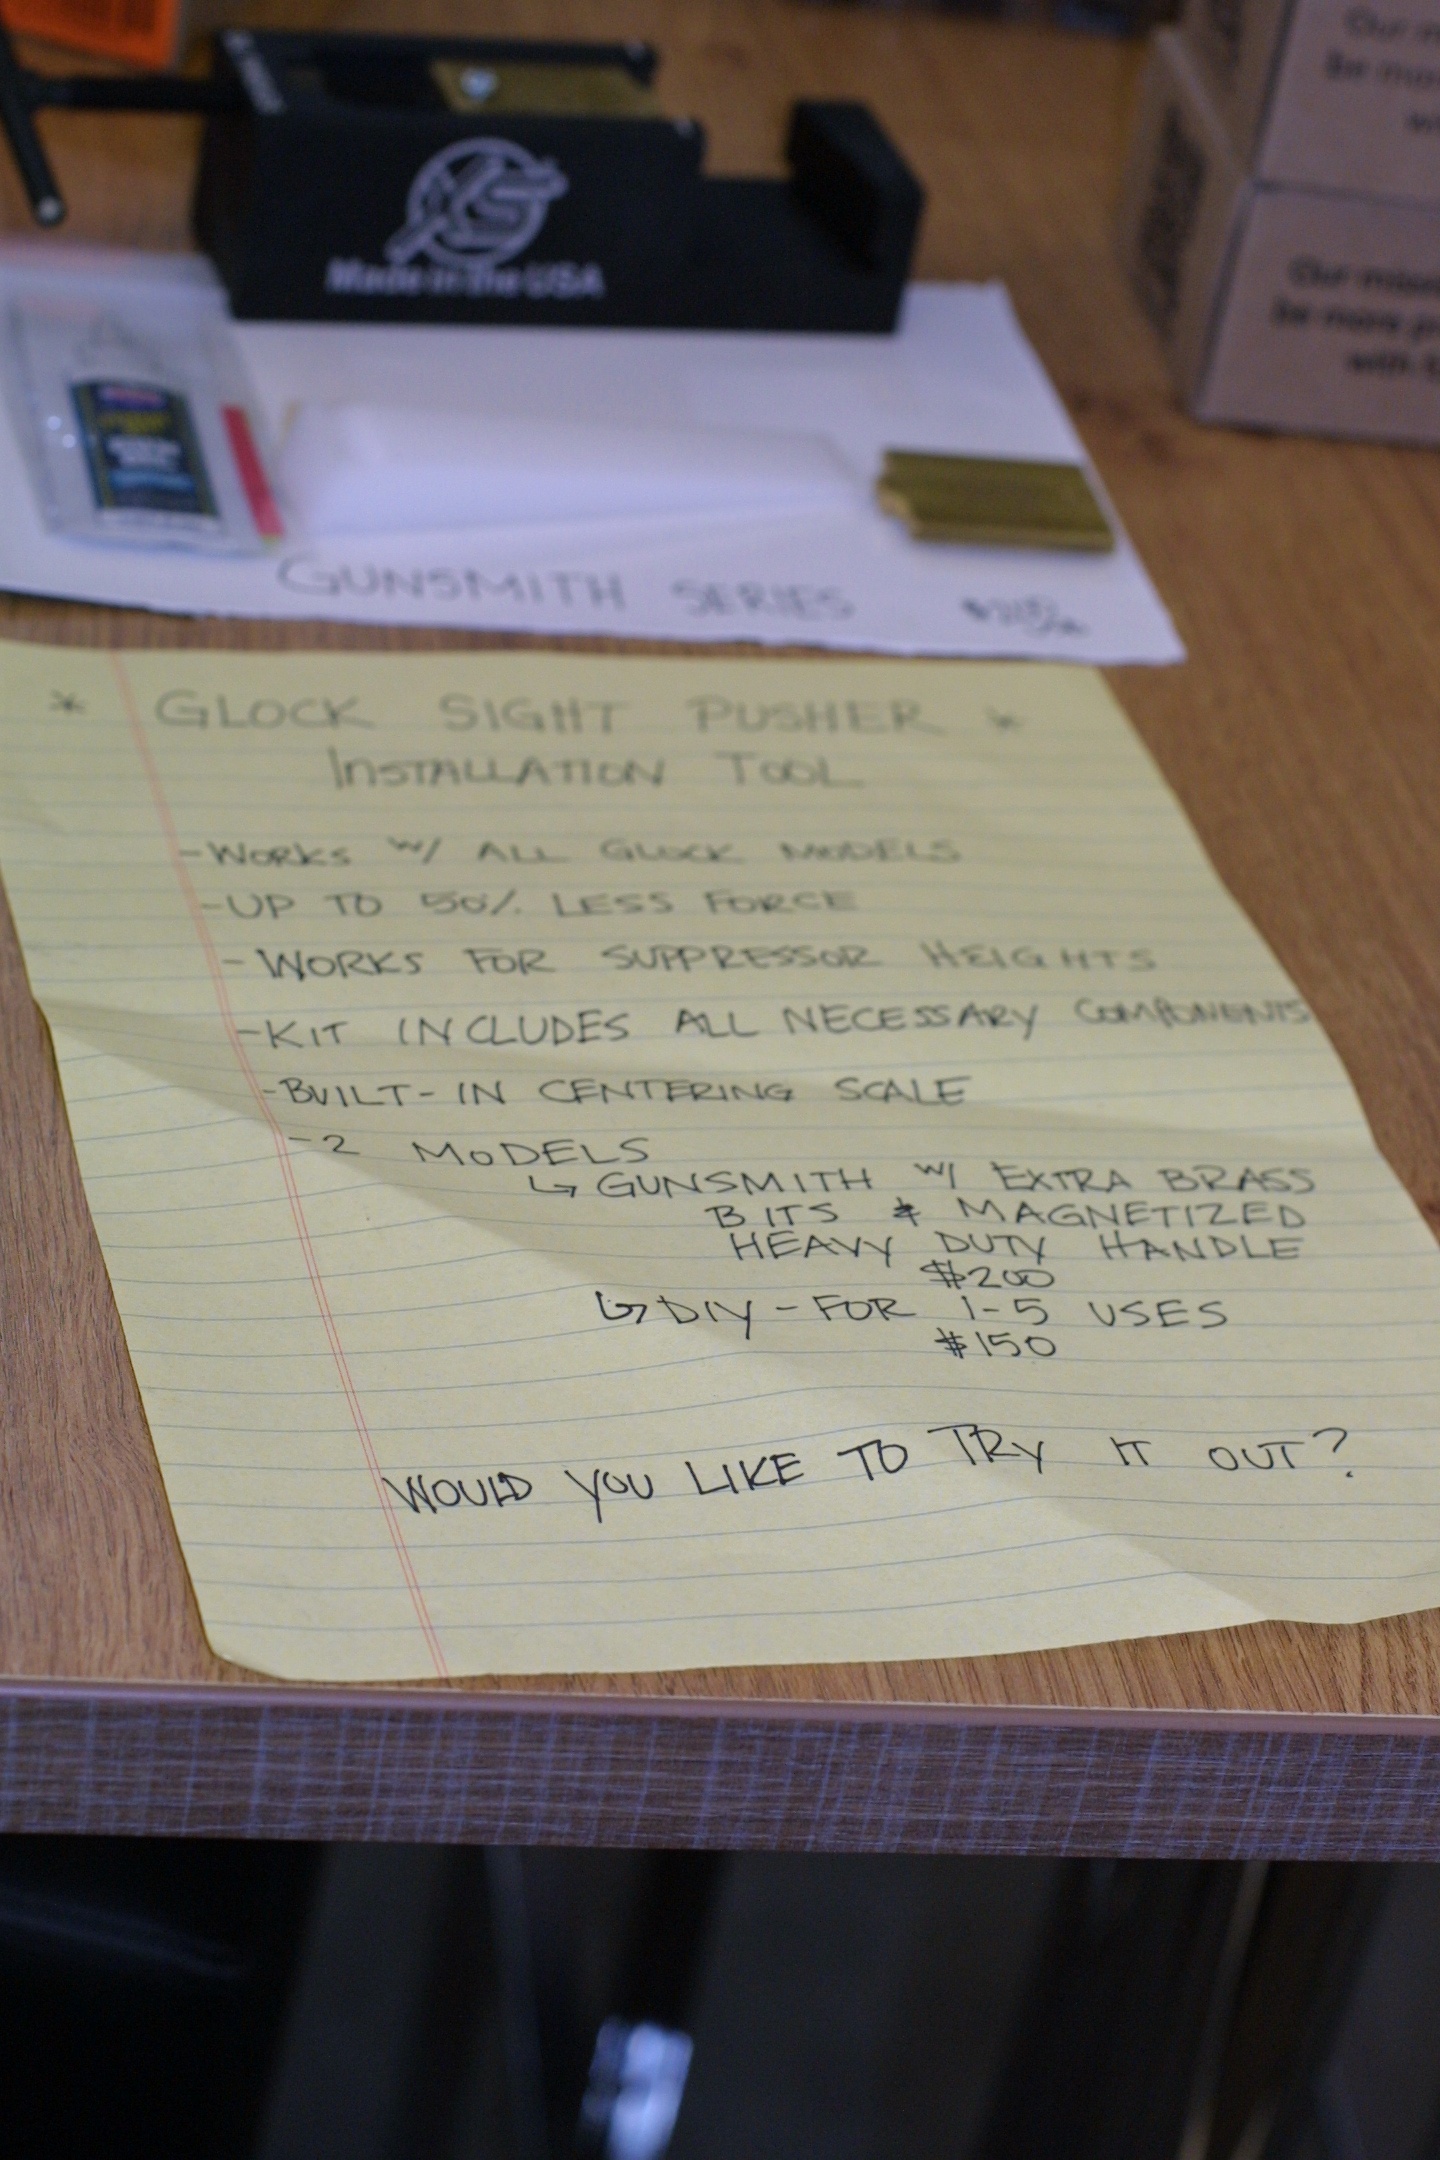 Made in the USA
Our
be more
Our
be more
with
GUNSMITH SERIES
* GLOCK SIGHT PUSHER *
INSTALLATION TOOL
- WORKS W/ ALL GLOCK MODELS
- UP TO 50% LESS FORCE
- WORKS FOR SUPPRESSOR HEIGHTS
- KIT INCLUDES ALL NECESSARY COMPONENTS
- BUILT-IN CENTERING SCALE
- 2 MODELS
↳ GUNSMITH W/ EXTRA BRASS
BITS & MAGNETIZED
HEAVY DUTY HANDLE
$200
↳ DIY - FOR 1-5 USES
$150
WOULD YOU LIKE TO TRY IT OUT?